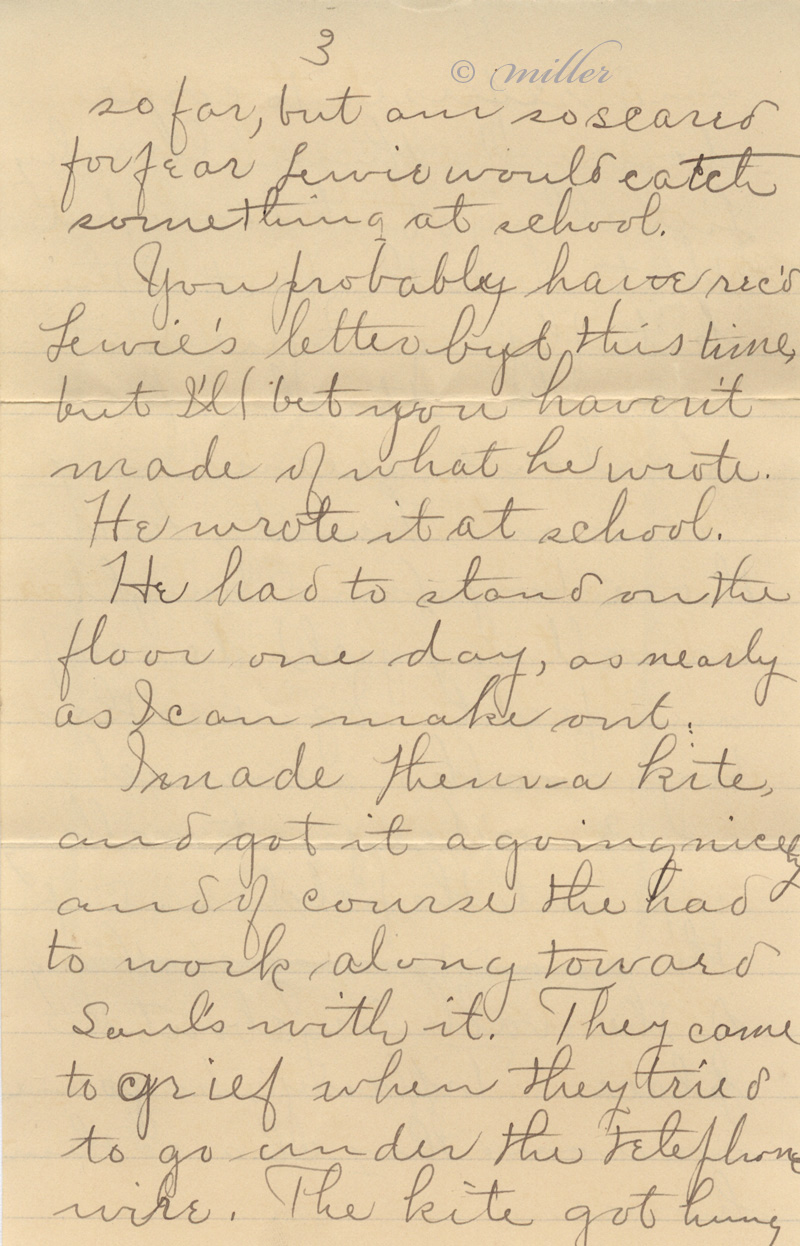 3
© miller
so far, but am so scared
for fear Lewie would catch
something at school.
You probably have rec'd
Lewie's letter by this time,
but I'll bet you haven't
made of what he wrote.
He wrote it at school.
He had to stand on the
floor one day, as nearly
as I can make out.
I made them a kite,
and got it a going nicely
and of course the had
to work along toward
Saul's with it. They came
to grief when they tried
to go under the telephone
wire. The kite got hung